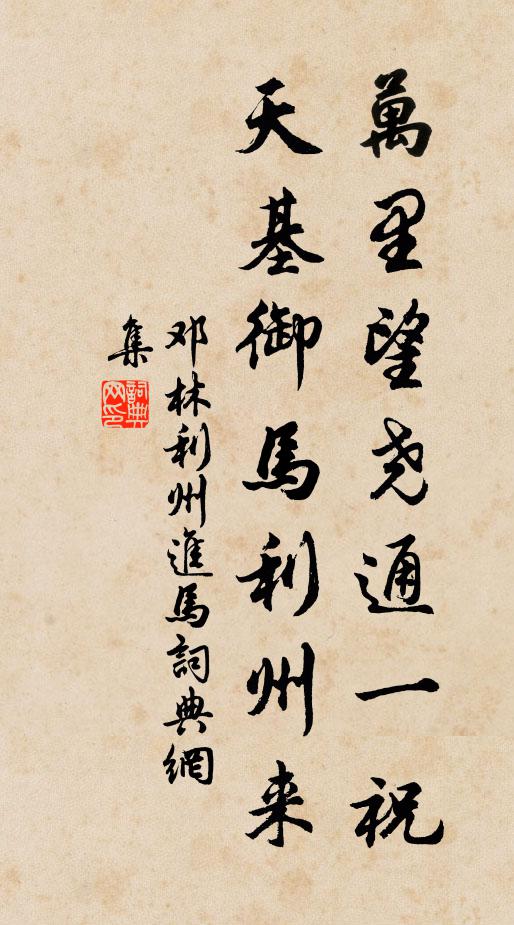 萬里望尧通一祝
天基御馬利州来
邓林利州進馬詞典網
集
詞典
网印